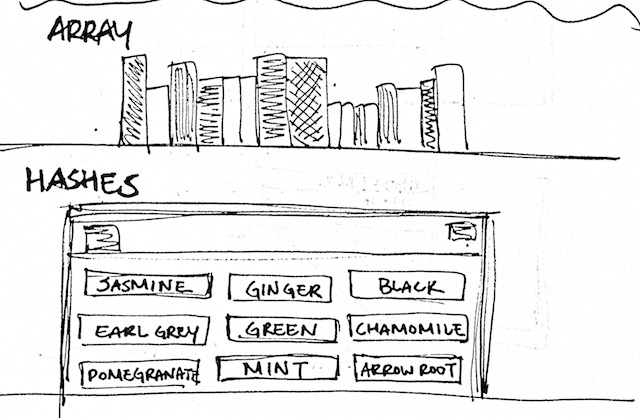 ARRAY
HASHES
JASMINE GINGER BLACK
EARL GREY GREEN CHAMOMILE
POMEGRANATE MINT ARROWROOT